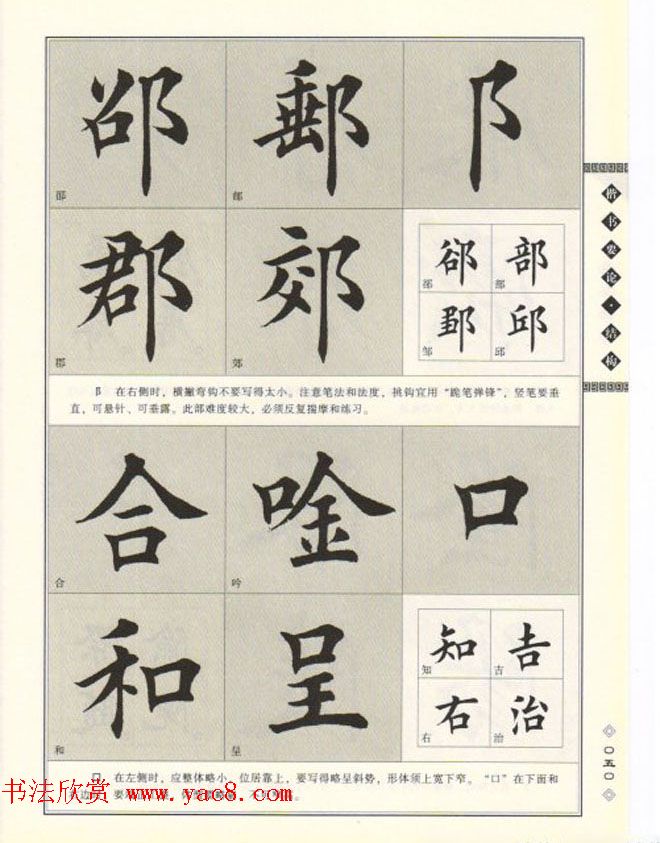 邵 邮 阝
邵 邮
郡 郊
郤 部
邹 邱
郡 郊 部 邹 邱
阝 在右侧时，横撇弯钩不要写得太小。注意笔法和法度，挑钩宜用“跪笔弹锋”，竖笔要垂
直，可悬针、可垂露。此部难度较大，必须反复揣摩和练习。
合 唫 口
合 吟
和 呈
知 吉
知 吉
右 治
和 呈 右 治
口 在左侧时，应整体略小，位居靠上，要写得略呈斜势，形体须上宽下窄。“口”在下面和
右边
书法欣赏 www.yac8.com
楷书要论·结构
〇五〇